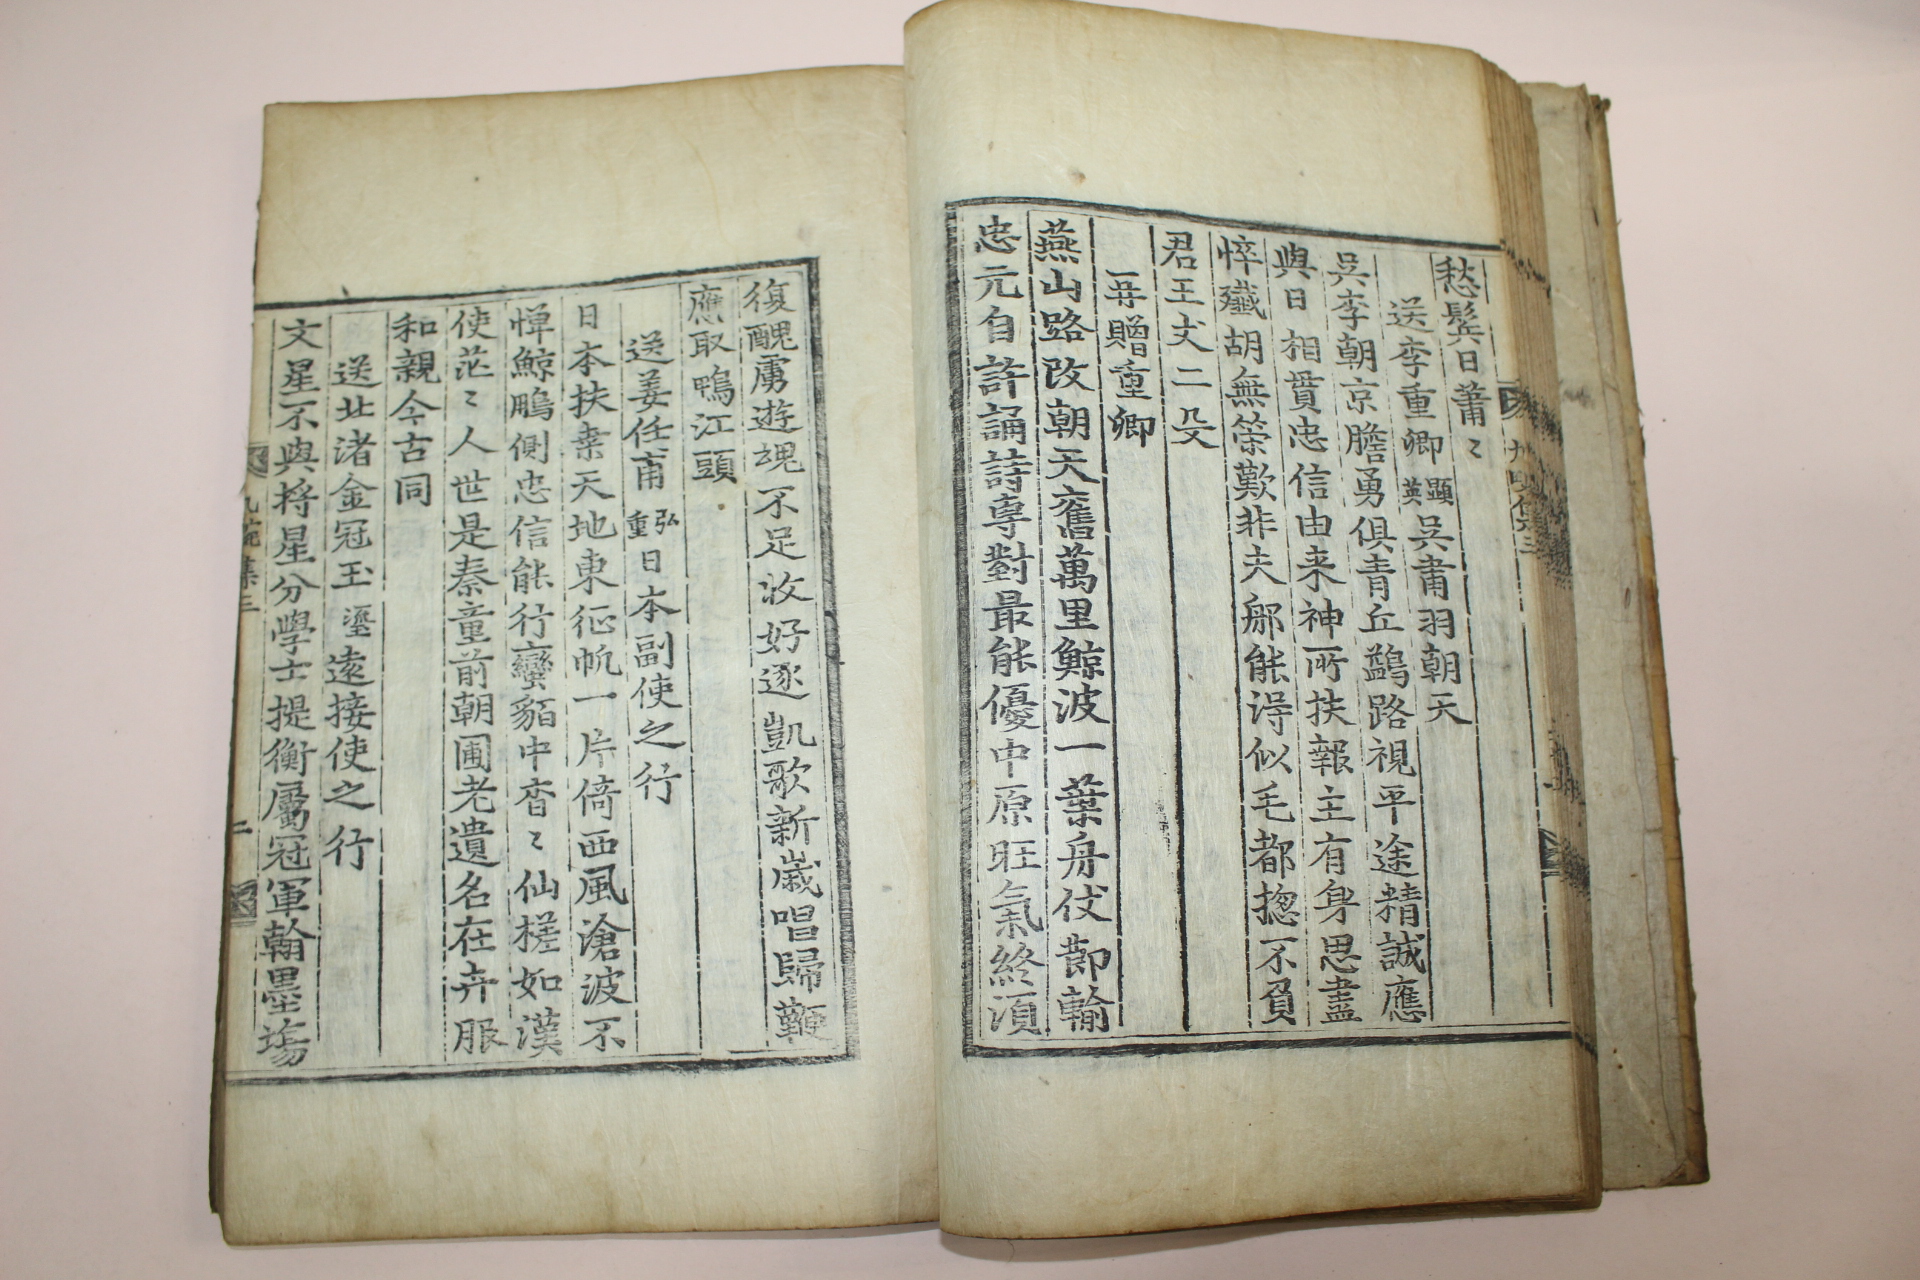 愁鬂日蕭〻
送李重卿顯英吳肅羽朝天
吳李朝京膽勇俱青丘鷁路視平途精誠應
與日相貫忠信由来神所扶報主有身思盡
悴殲胡無策歎非夫郍能淂似毛都揔不負
君王丈二殳
再贈重卿
燕山路改朝天舊萬里鯨波一葉舟伏節輸
忠元自許誦詩專對最能優中原旺氣終湏
復醜虜遊魂不足収好逐凱歌新歲唱歸鞭
應取鴨江頭
送姜任甫弘重日本副使之行
日本扶桑天地東征帆一片倚西風滄波不
憚鯨鵬側忠信能行蠻貊中杳〻仙槎如漢
使茫〻人世是秦童前朝圃老遺名在卉服
和親今古同
送北渚金冠玉瑬遠接使之行
文星不與將星分學士提衡屬冠軍翰墨塲